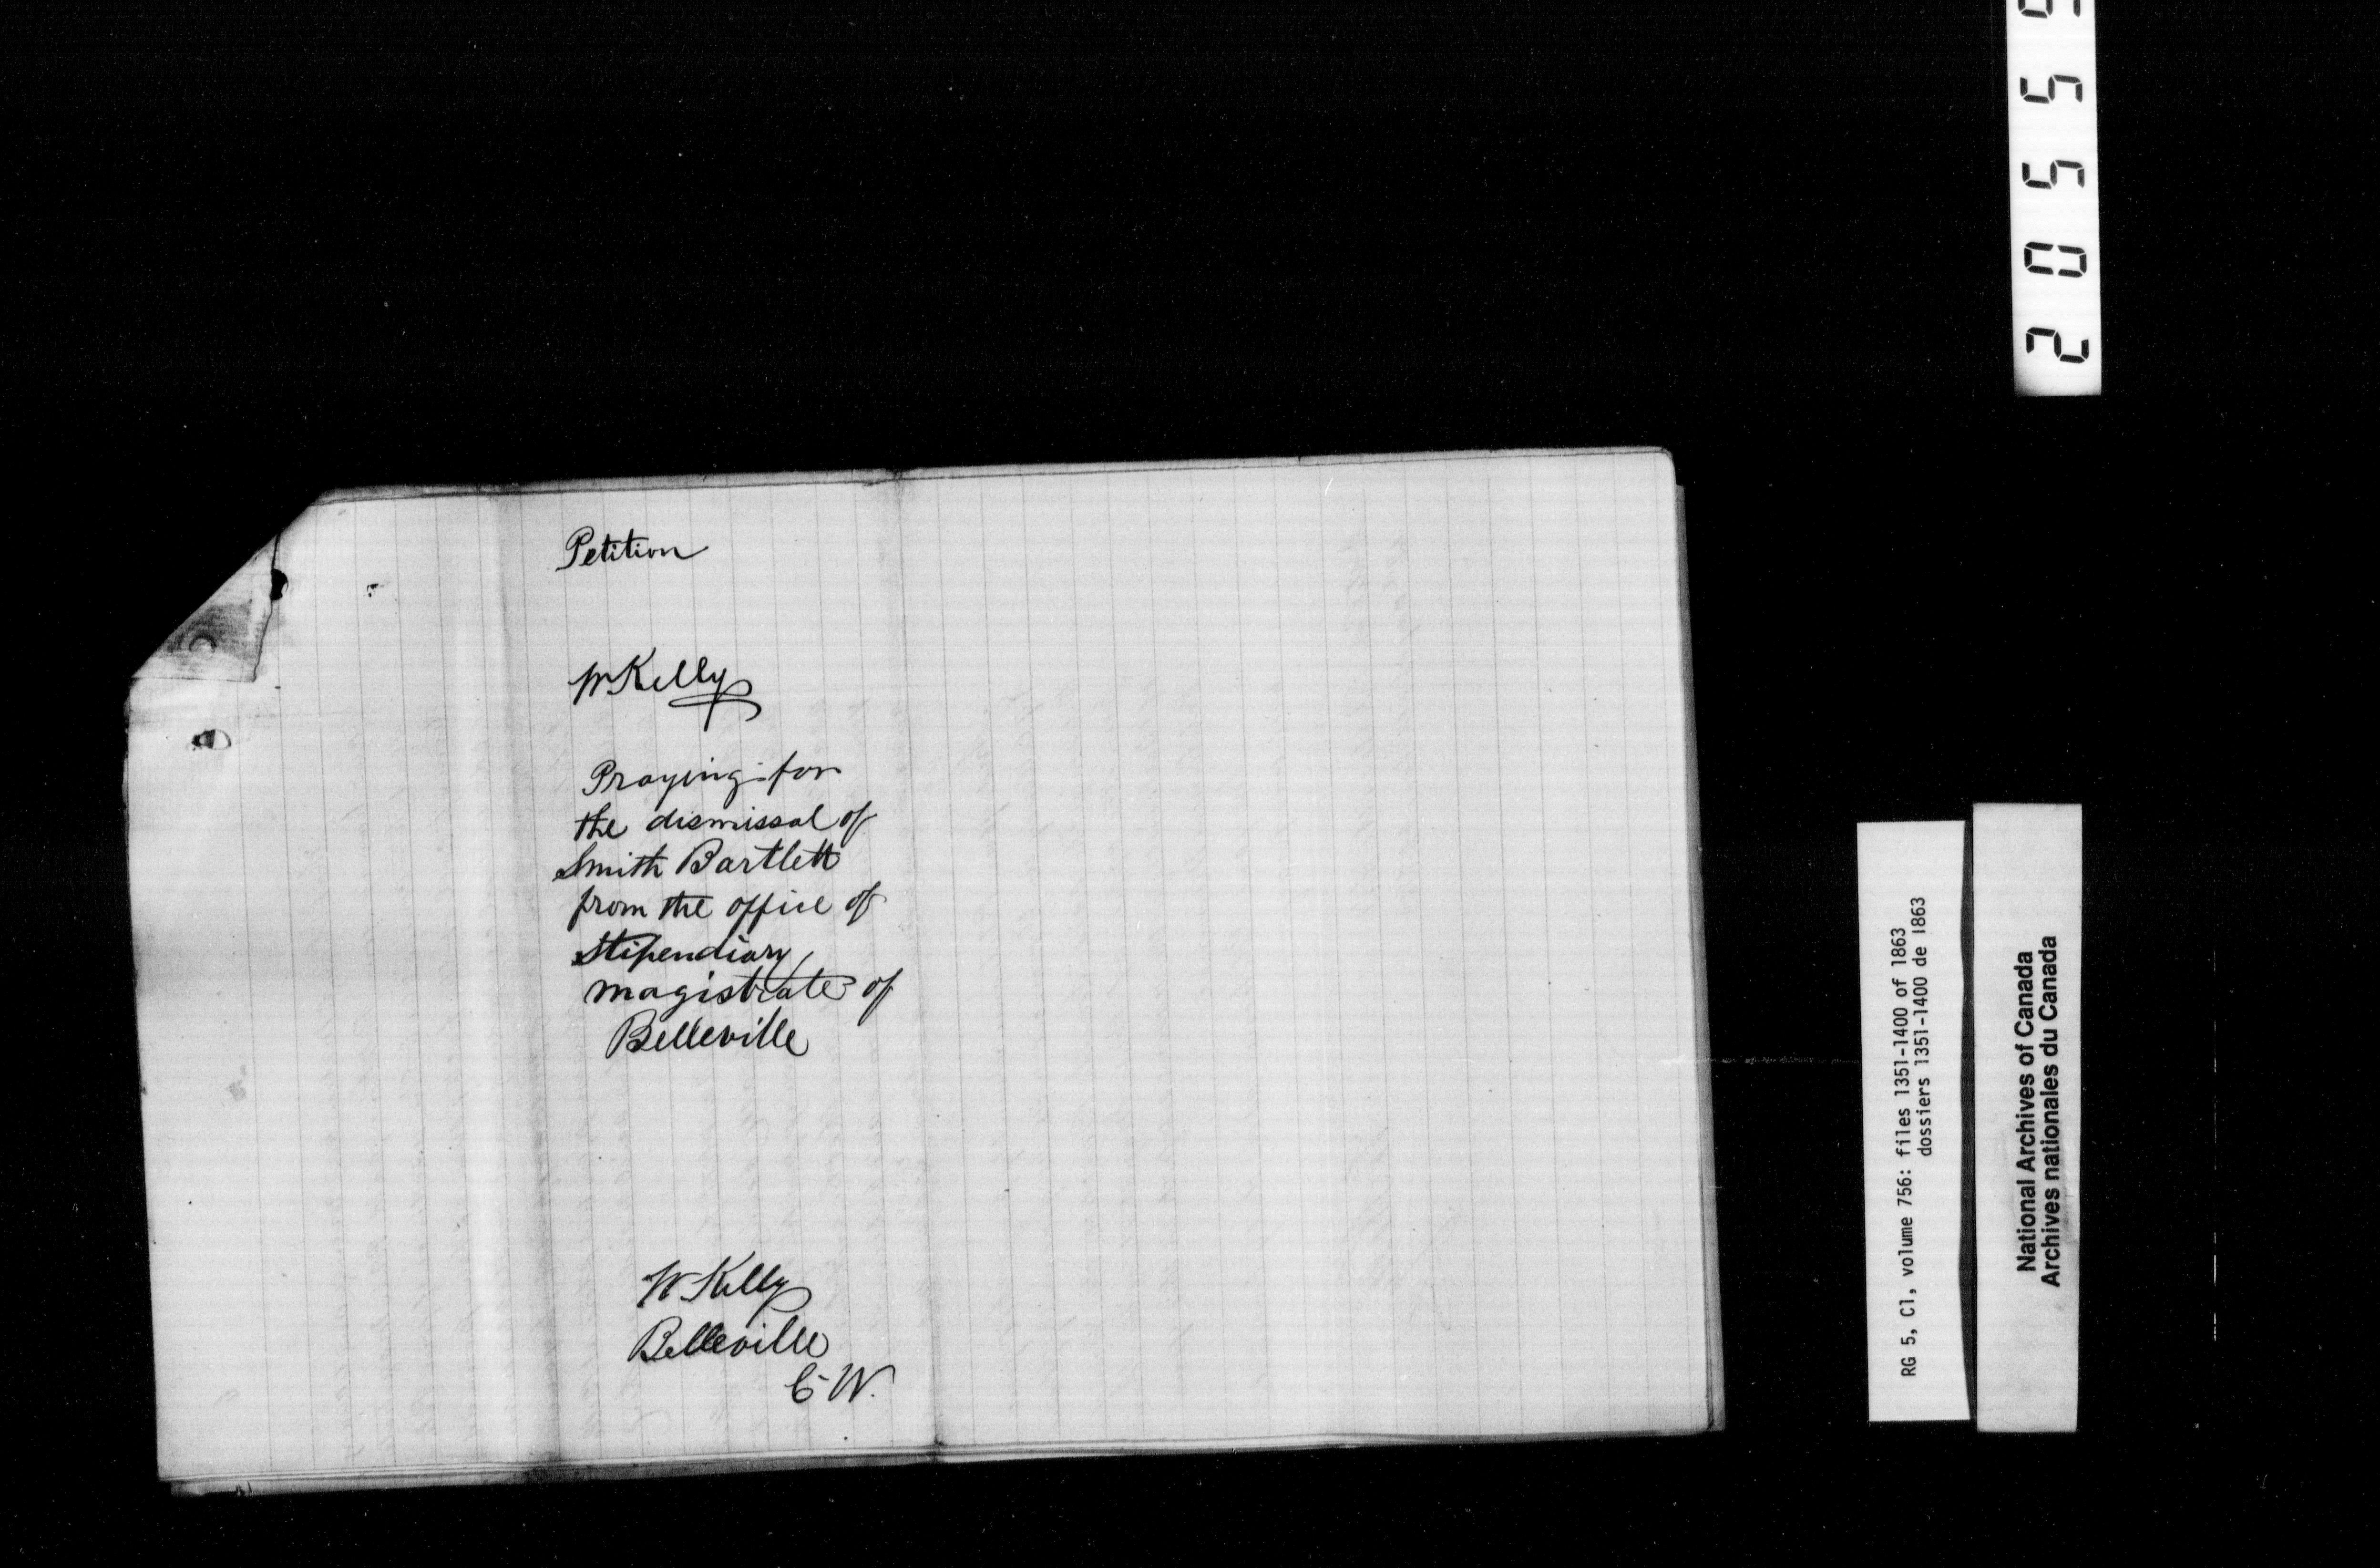 Petition
W Kelly
Praying for
the dismissal of
Smith Bartlett
from the office of
Stipendiary
magistrate of
Belleville
W Kelly
Belleville
C. W.
RG 5, C1, volume 756: files 1351-1400 of 1863
dossiers 1351-1400 de 1863
National Archives of Canada
Archives nationales du Canada
2055